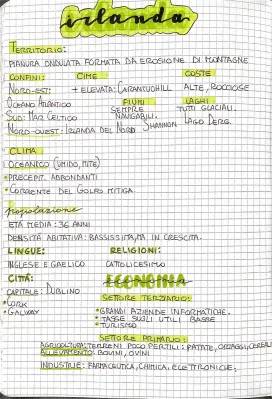 irlanda
TERRITORIO:
PIANURA ONDULATA FORMATA DA EROSIONE DI MONTAGNE
CONFINI: CIME COSTE
NORD-EST: + ELEVATA: CARANTUOHILL ALTE, ROCCIOSE
OCEANO ATLANTICO FIUMI LAGHI
SUD: MAR CELTICO SEMPRE NAVIGABILI. TUTTI GLACIALI.
NORD-OVEST: IRLANDA DEL NORD SHANNON LAGO DERG.
CLIMA
OCEANICO (UMIDO, MITE)
• PRECIPIT. ABBONDANTI
• CORRENTE DEL GOLFO MITIGA
popolazione
ETÀ MEDIA: 36 ANNI
DENSITÀ ABITATIVA: BASSISSIMA, MA IN CRESCITA.
LINGUE: RELIGIONI:
INGLESE E GAELICO CATTOLICESIMO
CITTÀ: ECONOMIA
CAPITALE: DUBLINO SETTORE TERZIARIO:
• CORK • GRANDI AZIENDE INFORMATICHE.
• GALWAY • TASSE SUGLI UTILI BASSE
• TURISMO
SETTORE PRIMARIO:
AGRICOLTURA: TERRENI POCO FERTILI: PATATE, ORTAGGI, CEREALI
ALLEVAMENTO: BOVINI, OVINI
INDUSTRIE: FARMACEUTICA, CHIMICA, ELETTRONICHE.